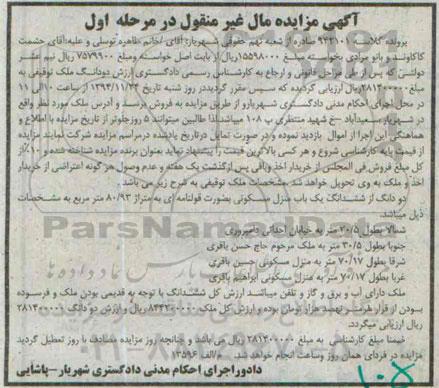 آگهی مزایده مال غیر منقول در مرحله اول
پرونده کلاسه ۹۴۲۱۰۱ صادره از شعبه نهم حقوقی شهریار: آقای /خانم طاهره توسلی و علیه: آقای حشمت
کاکاوند و بانو مرادی بخواسته مبلغ ۱۵۵۹۸۰۰۰ ریال از بابت اصل خواسته ومبلغ ۷۵۷۹۹۰۰ ریال نیم عشر
دولتی که پس از طی مراحل قانونی و ارجاع به کارشناس رسمی دادگستری ارزش دودانگ ملک توقیفی به
مبلغ ۲۸۱۴۰۰۰۰۰ ریال ارزیابی گردیده که سپس مقرر گردیددر روز شنبه تاریخ ۱۳۹۴/۱۱/۲۴ از ساعت ۱۰ الی ۱۱
در محل اجرای احکام مدنی دادگستری شهریارو از طریق مزایده به فروش برسد و آدرس ملک مورد نظر واقع
در شهریار سعیدآباد خ شهید منتظری پ ۱۰۸ میباشد.لذا طالبین میتوانند ۵ روزجلوتر از تاریخ مزایده با اطلاع و
هماهنگی این اجرا از اموال بازدید نموده و در صورت تمایل درتاریخ یادشده درمراسم مزایده شرکت نمایند مزایده
از قیمت پایه کارشناسی شروع و هر کسی بالاترین قیمت را پیشنهاد نماید بعنوان برنده مزایده شناخته شده و ۱۰٪ از
کل مبلغ فروش فی المجلس از خریدار اخذ وباقی پس ازگذشت یک هفته و عدم وصول هر گونه اعتراضی از خریدار
اخذ و ملک به وی تحویل خواهد شد .مشخصات ملک توقیفی به شرح زیر می باشد .
دو دانگ از ششدانگ یک باب منزل مسکونی بصورت قولنامه ای به متراژ ۸۰/۹۳ متر مربع به مشخصات
ذیل میباشد.
شمالا بطول ۳۰/۵ متر به خیابان احداثی دامپروری
جنوبا بطول ۳۰/۵ متر به ملک مرحوم حاج حسن باقری
شرقا بطول ۷۰/۱۷ متر به منزل مسکونی حسین باقری
غربا بطول ۷۰/۱۷ متر به منزل مسکونی ابراهیم باقری
ملک دارای آب و برق و گاز و تلفن میباشد ارزش کل ششدانگ با توجه به قدیمی بودن ملک و فرسوده
بودن از قرار هرمتر نهصد هزار تومان بوده و ارزش کل ملک ۸۴۴۲۰۰۰۰۰ ریال و ارزش دو دانگ ۲۸۱۴۰۰۰۰۰
ریال ارزیابی میگردد.
ضمنا مبلغ کارشناسی به مبلغ ۲۸۱۴۰۰۰۰۰ ریال می باشد و چنانچه روز مزایده مصادف با روز تعطیل گردید
مزایده در فردای همان روز وساعت انجام خواهد شد. م/الف ۱۳۵۹۶
دادورز اجرای احکام مدنی دادگستری شهریار-پاشایی
ParsNamadData
۱۰۵